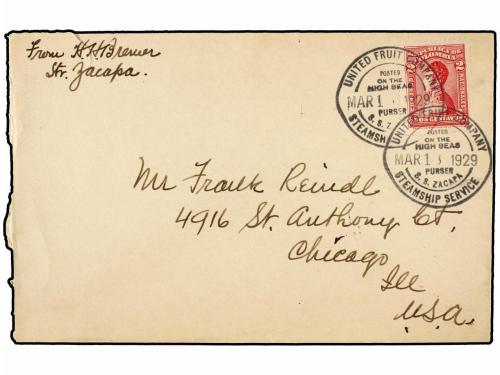 From H.H. Bremer
Str. Zacapa.
UNITED FRUIT COMPANY
POSTED
ON THE
HIGH SEAS
MAR 1 1929
PURSER
S. S. Z
STEAMSHIP
COLOMBIA
DOS CENTAVOS
UNITED FRUIT COMPANY
POSTED
ON THE
HIGH SEAS
MAR 13 1929
PURSER
S. S. ZACAPA
STEAMSHIP SERVICE
Mr Frank Reindl
4916 St. Anthony Ct.
Chicago
Ill
U.S.A.